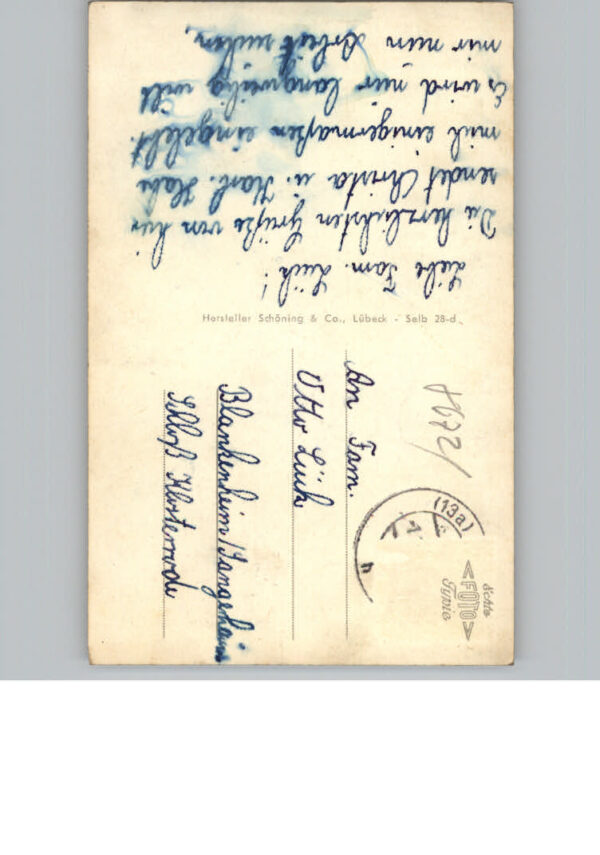 Liebe Fam. Lück!
Die herzlichsten Grüße von hier
sendet Christa u. Karl. Habe
mich einigermaßen eingelebt.
Es wird mir langweilig will
mir nun Arbeit suchen.
Hersteller Schöning & Co., Lübeck - Selb 28-d
An Fam.
Otto Lück
Blankenheim/Sangerhausen
Schloß Klosterrode
8672/
(13a)
Echte
FOTO